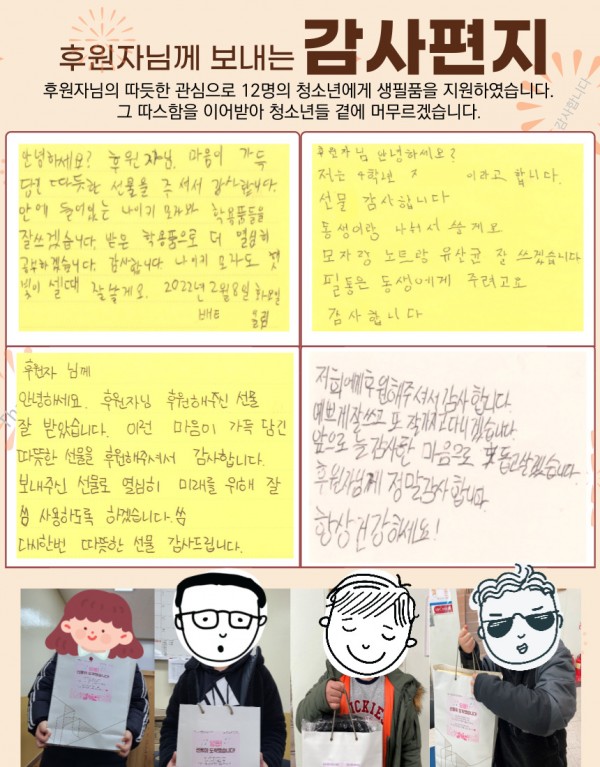 후원자님께 보내는 감사편지
후원자님의 따듯한 관심으로 12명의 청소년에게 생필품을 지원하였습니다.
그 따스함을 이어받아 청소년들 곁에 머무르겠습니다.
감사합니다
안녕하세요? 후원자님. 마음이 가득
담긴 따뜻한 선물을 주셔서 감사합니다.
안에 들어있는 나이키 모자와 학용품들을
잘쓰겠습니다. 받은 학용품으로 더 열심히
공부하겠습니다. 감사합니다. 나이키 모자도 햇
빛이 셀때 잘쓸게요. 2022년 2월 8일 화요일
올림
후원자님 안녕하세요?
저는 4학년 이라고 합니다.
선물 감사합니다
동생이랑 나눠서 쓸게요
모자랑 노트랑 유산균 잘 쓰겠습니다
필통은 동생에게 주려고요
감사합니다
후원자 님께
안녕하세요. 후원자님 후원해주신 선물
잘 받았습니다. 이런 마음이 가득 담긴
따뜻한 선물을 후원해주셔서 감사합니다.
보내주신 선물로 열심히 미래를 위해 잘
사용하도록 하겠습니다.
다시한번 따뜻한 선물 감사드립니다.
저희에게 후원해주셔서 감사합니다.
예쁘게 잘쓰고 또 잘가지고 다니겠습니다.
앞으로 늘 감사한 마음으로 돕고 살겠습니다.
후원자님께 정말 감사합니다.
항상 건강하세요!